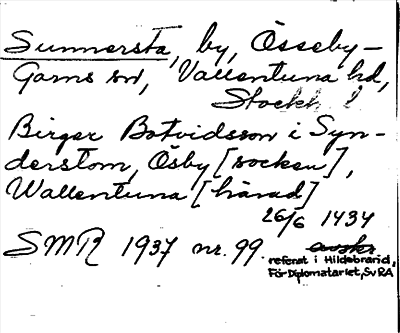 Sunnersta, by, Össeby-
Garns sn, Vallentuna hd,
Stockh. l.
Birger Botvidsson i Syn-
derstom, Ösby [socken],
Wallentuna [härad]
26/6 1434
SMR 1937 nr. 99. avskr
referat i Hildebrand,
För Diplomatariet, SvRA